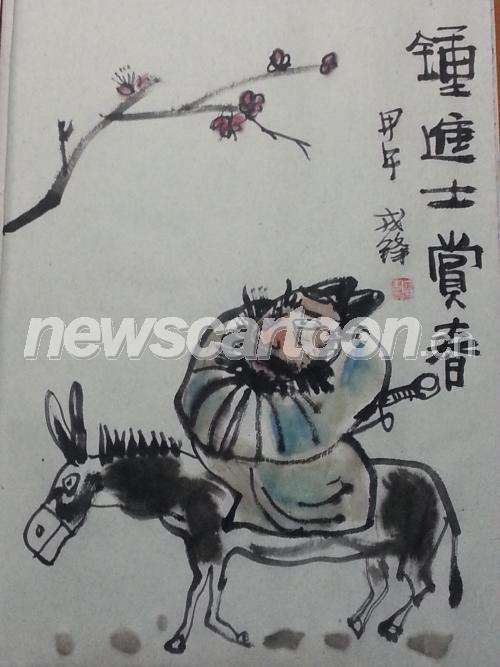 鍾進士賞春
甲午
戎鋒
newscartoon.cn